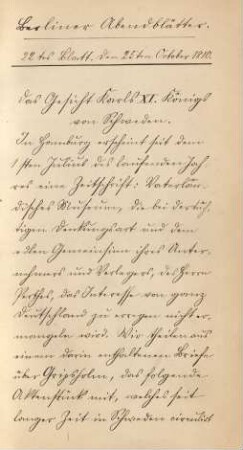 Berliner Abendblätter.
22tes Blatt. Den 25ten October 1810.
Das Gesicht Karls XI. Königs
von Schweden.
In Hamburg erscheint seit dem
1sten Julius des laufenden Jah-
res eine Zeitschrift: Vaterlän-
disches Museum, die bei der rüs-
tigen Denkungsart und dem
edlen Gemeinsinn ihres Unter-
nehmers und Verlegers, des Herrn
Perthes, das Interesse von ganz
Deutschland zu erregen nicht er-
mangeln wird. Wir theilen aus
einem darin enthaltenen Briefe
über Gripsholm, das folgende
Aktenstück mit, welches seit
langer Zeit in Schweden circulirt